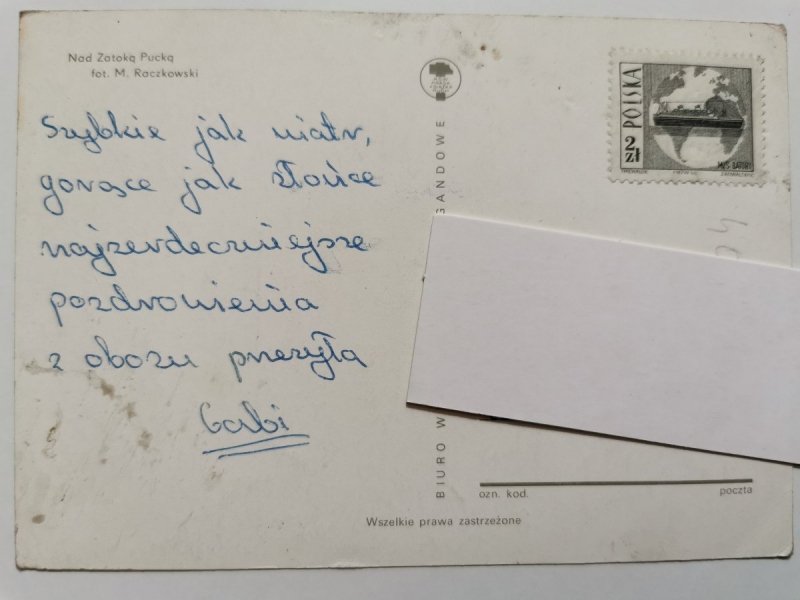 Nad Zatoką Pucką
fot. M. Raczkowski
Szybkie jak wiatr,
gorące jak słońce
najserdeczniejsze
pozdrowienia
z obozu przesyła
Gabi
BIURO W
GANDOWE
POLSKA
2 zł
M/S BATORY
ozn. kod.
poczta
Wszelkie prawa zastrzeżone